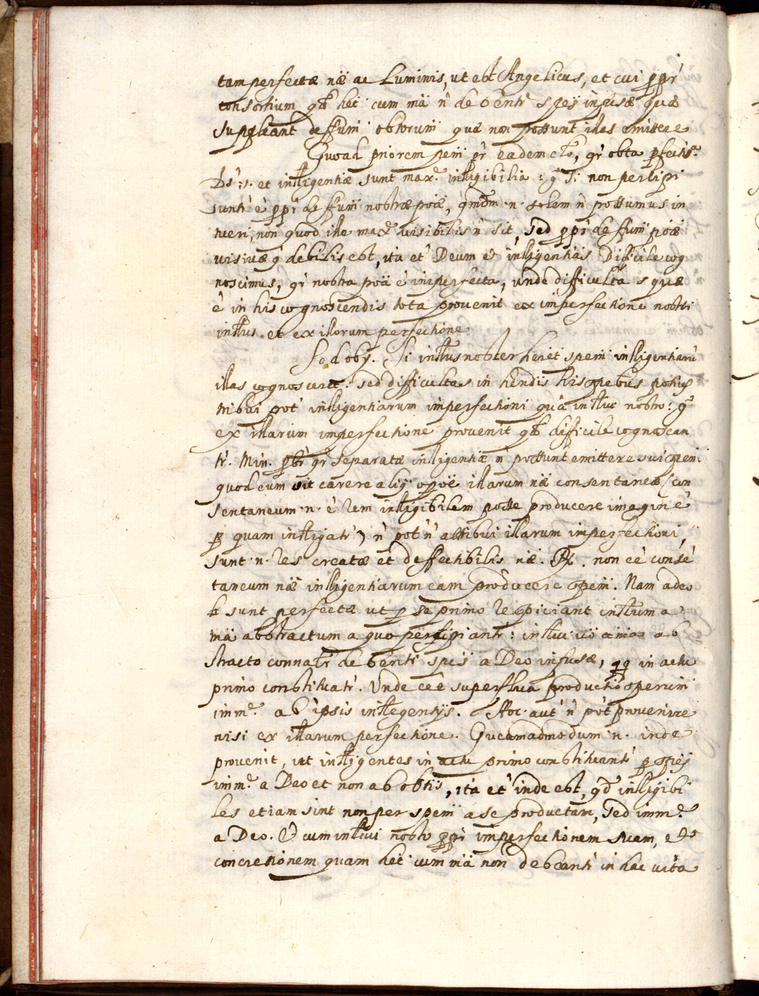 tam perfectæ nã ac Luminis, ut est Angelicus, et cui ppr̃
consortium qđ het cum mã ñ debenti spẽs infusæ quæ
supleant deffum obtorum quæ non possunt illas emittere
Quoad priorem pem pr̃ eadem clõ, qr̃ obta pfectis.ᵃ
Ds .s. et intligentiæ sunt maxᵉ. intligibilia
sunt è ppr̃ deffum nostræ poæ, qmdm .n. solem ñ possumus in
tueri, non quod ille maxᵉ visibilis ñ sit, sed ppr̃ deffum poæ
visivæ q̃ debilis est, ita et Deum et intligentias difficile cog
noscimus, qr̃ nostra poã è imperfecta, unde difficultas quæ
è in his cognoscendis tota provenit ex imperfectione nostri
intlus et ex illorum perfectione
Sed oby. Si intlus noster heret spem intligentiarũ
illas cognosceret: sed difficultas in hendis his spebus potius
tribui pot intligentiarum imperfectioni quã intlui nostro: g̃
ex illarum imperfectione provenit qđ difficile cognoscan
tr̃. Min. pbr̃ qr̃ separatæ intligentiæ ñ possunt emittere sui spem
quod cum sit carere aliq̃ ppõe illarum næ consentanea (con
sentaneum .n. è rem intligibilem posse producere imaginẽ
p quam intligatr̃) ñ pot ñ attribui illarum imperfectioni,
sunt .n. res creatæ et deffectibilis næ. R. non eè consẽ
taneum næ intligentiarum eam producere spem. Nam adeo
sunt perfectæ ut p se primo respiciant intlum a
mã abstractum a quo percipiantr̃: intlui
stracto connatr̃ debenti spẽs a Deo infusæ, in actu
primo constituatr̃. Unde eèt superflua productio specieri
immᵉ. ab ipsis intlegentijs. Hoc aut ñ pot provenire
nisi ex illarum perfectione. Quemadmodum .n. inde
provenit, ut intligentes in actu primo constituantr̃ p spẽs
immᵉ. a Deo et non ab obtis, ita et inde est, qđ intligibi
les etiam sint non per spem a se productam, sed immᵉ.
a Deo. Et cum intlui nostro ppr̃ imperfectionem suam, et
concretionem quam het cum mã non debeantr̃ in hac vita